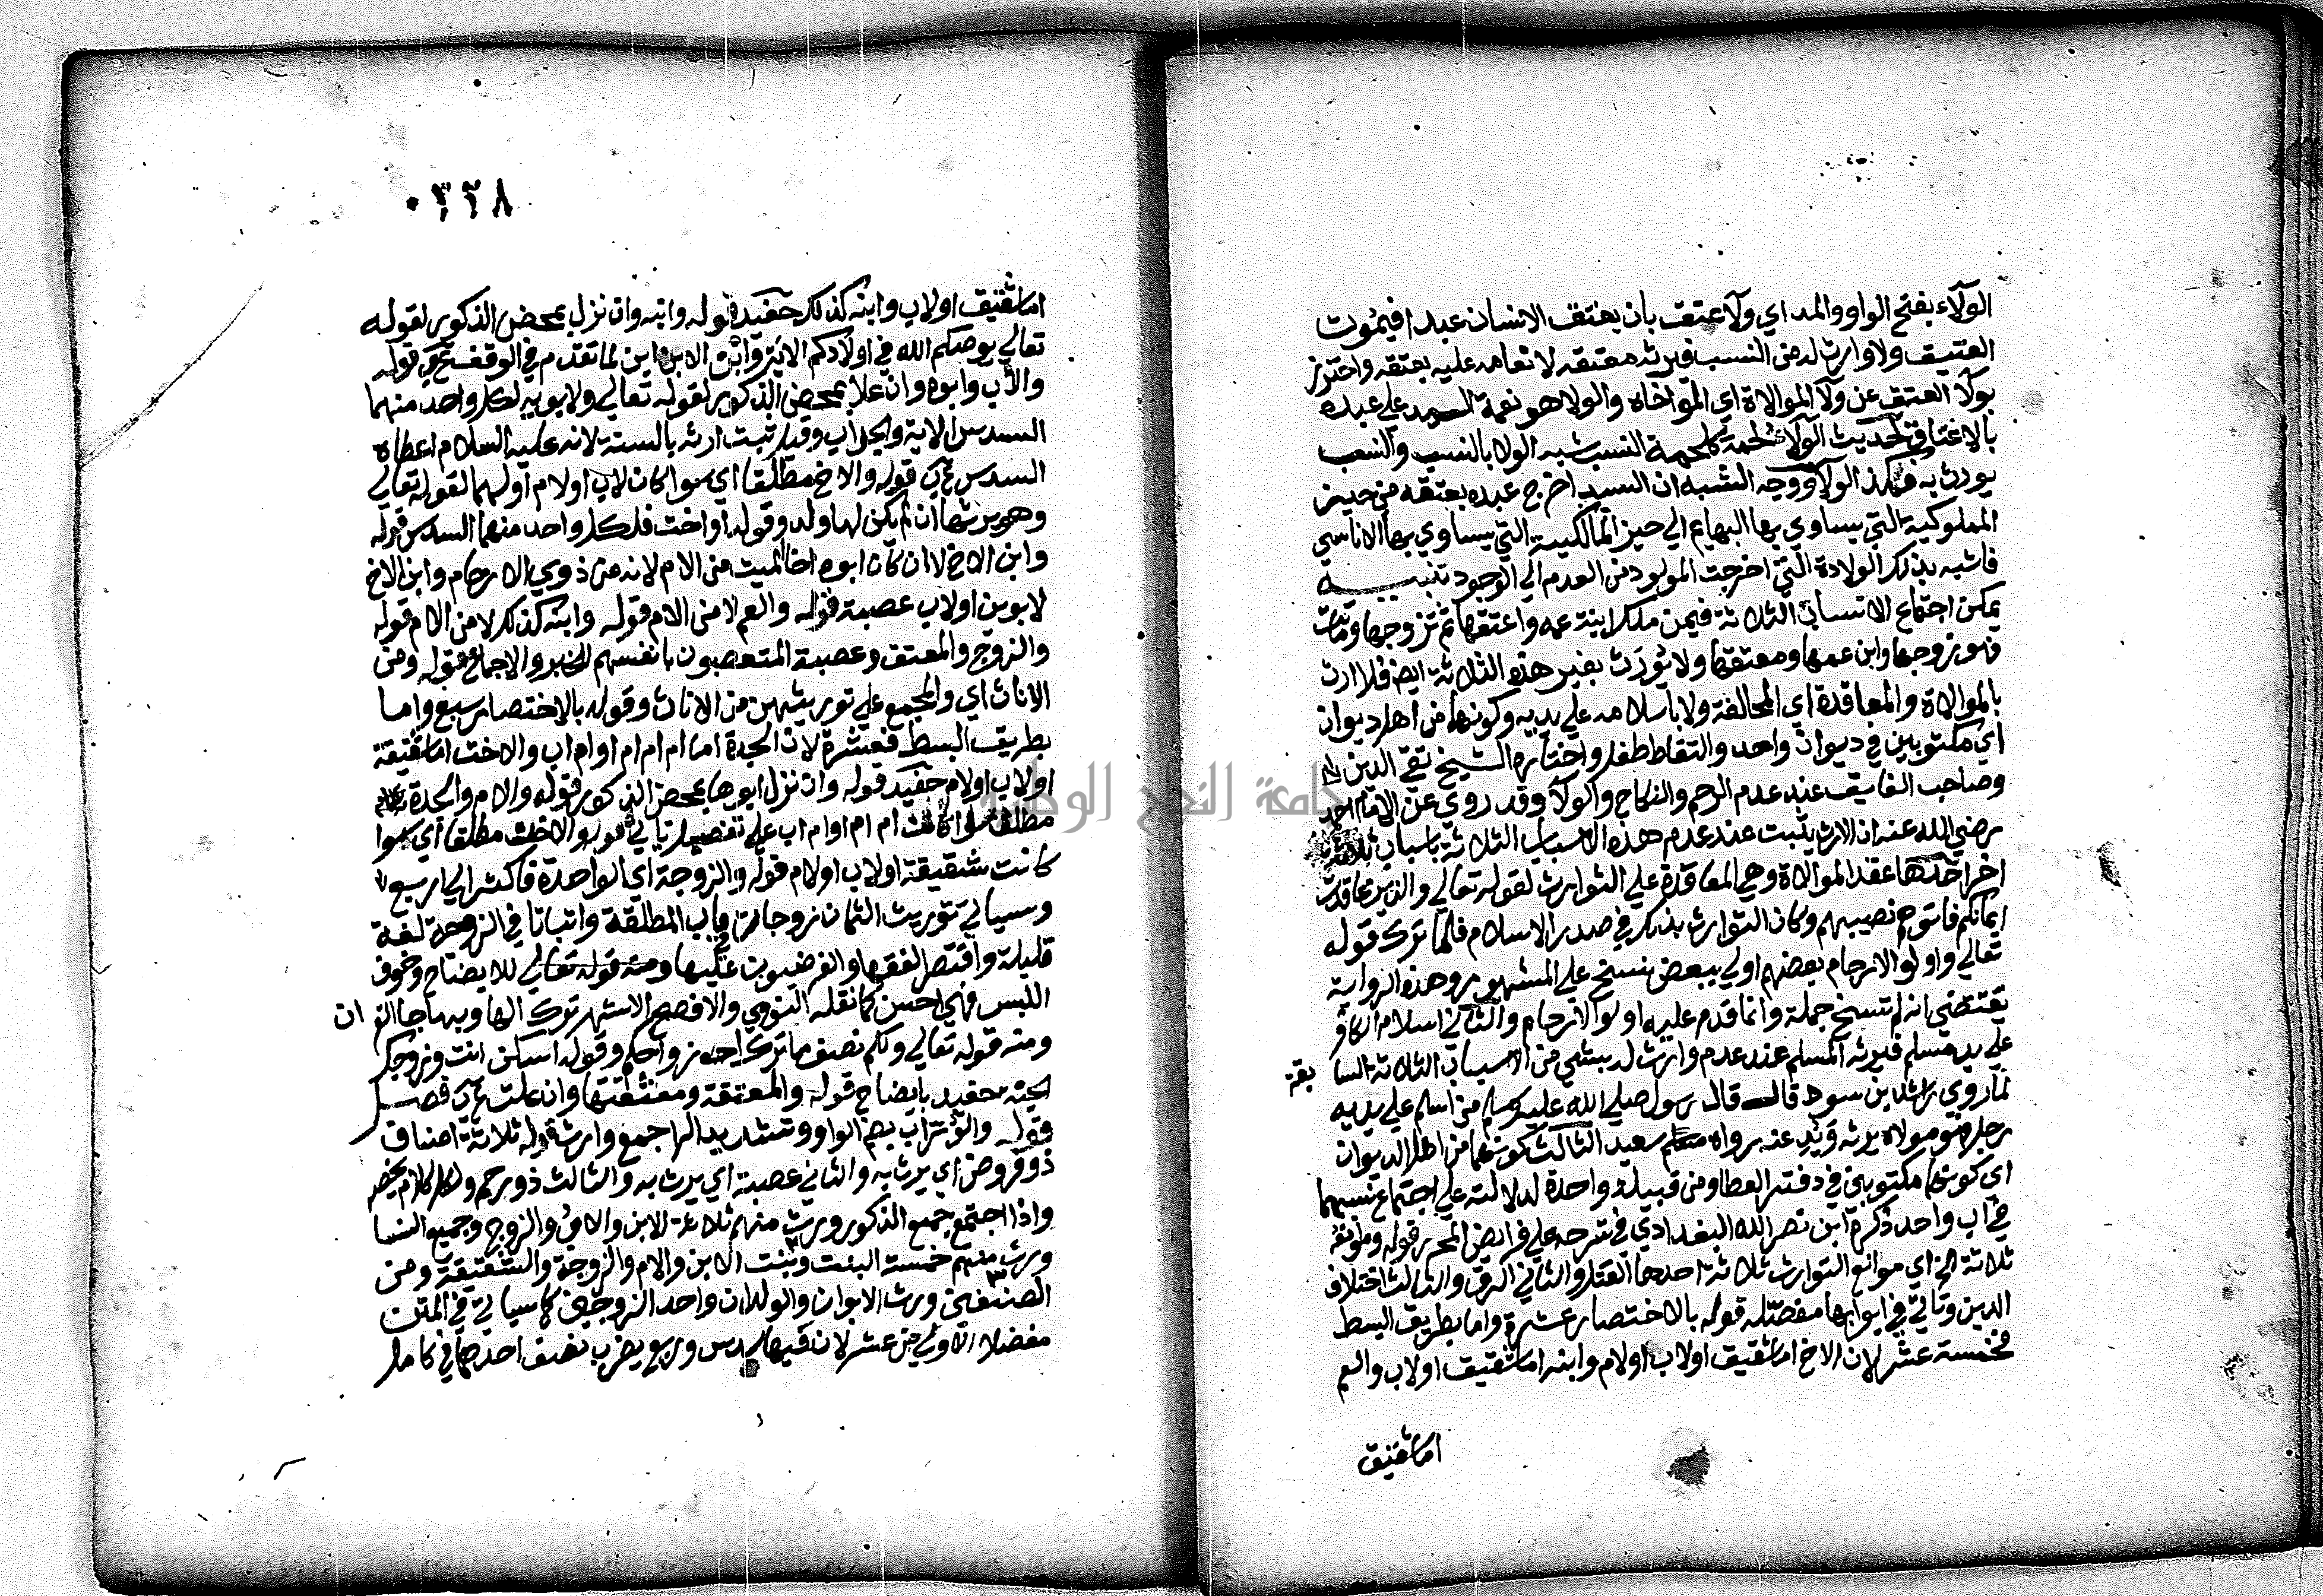 الولآء بفتح الواو والمد اي ولآ عتق بان يعتق الانسان عبدا فيموت
العتيق ولا وارث له من النسب فيرثه معتقه لانعامه عليه بعتقه واحترز
بولآ العتق عن ولآ الموالاة اي المؤاخاه والولا هو نعمة السيد علي عبده
بالاعتاق لحديث الولآ لحمة كلحمة النسب شبه الولا بالنسب والنسب
يورث به فكذا الولآ ووجه الشبه ان السيد اخرج عبده بعتقه من حيز
المملوكية التي يساوي بها البهايم الي حيز المالكية التي يساوي بها الاناسي
فاشبه بذلك الولادة التي اخرجت المولود من العدم الي الوجود تنبيه
يمكن اجتماع الاسباب الثلاثة فيمن ملك ابنة عمه واعتقها ثم تزوجها وماتت
فهو زوجها وابن عمها ومعتقها ولا يورث بغير هذه الثلاثة ايض فلا ارث
بالموالاة والمعاقدة اي المحالفة ولا باسلامه علي يديه وكونهما من اهل ديوان
اي مكتوبين في ديوان واحد والتقاط طفل واختاره الشيخ تقي الدين
وصاحب الفايق عند عدم الرحم والنكاح والولآ وقد روي عن الامام احمد
رضي الله عنه ان الارث يثبت عند عدم هذه الاسباب الثلاثة باسباب ثلاثة
اخر احدها عقد الموالاة وهي المعاقدة علي التوارث لقوله تعالي والذين عاقدت
ايمانكم فاتوهم نصيبهم وكان التوارث بذلك في صدر الاسلام فلما ترك قوله
تعالي واولو الارحام بعضهم اولي ببعض نسخ علي المشهور وهذه الرواية
تقتضي انه لم تنسخ جملة وانما قدم عليه اولو الارحام والثاني اسلام الكافر
علي يد مسلم فيرثه المسلم عند عدم وارث له بشي من الاسباب الثلاثة السا بقة
لما روي راشد بن سود قال قال رسول صلي الله عليه وسلم من اسلم علي يديه
رجل فهو مولاه يرثه ويدي عنه رواه سعيد الثالث كونهما من اهل الديوان
اي كونهما مكتوبين في دفتر العطا ومن قبيلة واحدة لدلالته علي اجتماع نسبهما
في اب واحد ذكره ابن نصر الله البغدادي في شرحه علي فرايض المحرر قوله وموانعه
ثلاثة الخ اي موانع التوارث ثلاثة احدها القتل والثاني الرق والثالث اختلاف
الدين وتاتي في ابوابها مفصله قوله بالاختصار عشرة واما بطريق البسط
فخمسة عشر لان الاخ اما شقيق اولاب اولام وابنه اما شقيق اولاب والعم
اما شقيق
٠٣٢٨
اما شقيق اولاب وابنه كذلك حفيد قوله وابنه وان نزل بمحض الذكور لقوله
تعالي يوصيكم الله في اولادكم الاية وابن الابن ابن لما تقدم في الوقف ع ن قوله
والاب وابوه وان علا بمحض الذكور لقوله تعالي ولابويه لكل واحد منهما
السدس الاية والجد اب وقيل ثبت ارثه بالسنة لانه عليه السلام اعطاه
السدس ع ن قوله والاخ مطلقا اي سوا كان لاب اولام اولهما لقوله تعالي
وهو يرثها ان لم يكن لها ولد وقوله اواخت فلكل واحد منهما السدس قوله
وابن الاخ لا ان كان ابوه اخا للميت من الام لانه من ذوي الارحام وابن الاخ
لابوين اولاب عصبة قوله والعم لا من الام قوله وابنه كذلك لا من الام قوله
والزوج والمعتق وعصبة المتعصبون بانفسهم للخبر والاجماع قوله ومن
الاناث اي والمجمع علي توريثهن من الاناث وقوله بالاختصار سبع واما
بطريق البسط فعشرة لان الجدة اما ام ام او ام اب والاخت اما شقيقة
اولاب اولام حفيد قوله وان نزل ابوها بمحض الذكور قوله والام والجدة
مطلقا سوا كانت ام ام او ام اب علي تفصيل ياتي قوله والاخت مطلقا اي سوا
كانت شقيقة اولاب اولام قوله والزوجة اي الواحدة فاكثر الي اربع
وسياتي توريث الثمان زوجات في باب المطلقة واثباتا في الزوجة لغة
قليلة واقتصر الفقها والفرضيون عليها ومنه قوله تعالي للايضاح وخوف
اللبس فهي احسن كما نقله النووي والافصح الاشهر ترك الها وبها جا القران
ومنه قوله تعالي ولكم نصف ما ترك ازواجكم وقوله اسكن انت وزوجك
الجنة حفيد بايضاح قوله والمعتقة ومعتقتها وان علت ع ن فصل
قوله والوراث بضم الواو وتشديد الرا جمع وارث قوله ثلاثة اصناف
ذو فروض اي يرث به والثاني عصبة اي يرث به والثالث ذو رحم ولكل كلام يخصه
واذا اجتمع جميع الذكور ورث منهم ثلاثة الابن والاب والزوج وجميع النسا
ورث منهم خمسة البنت وبنت الابن والام والزوجة والشقيقة ومن
الصنفين ورث الابوان والولدان واحد الزوجين كما سياتي في المتن
مفصلا الاولي من عشر لان فيها سدس وربع يضرب نصف احدهما في كامل